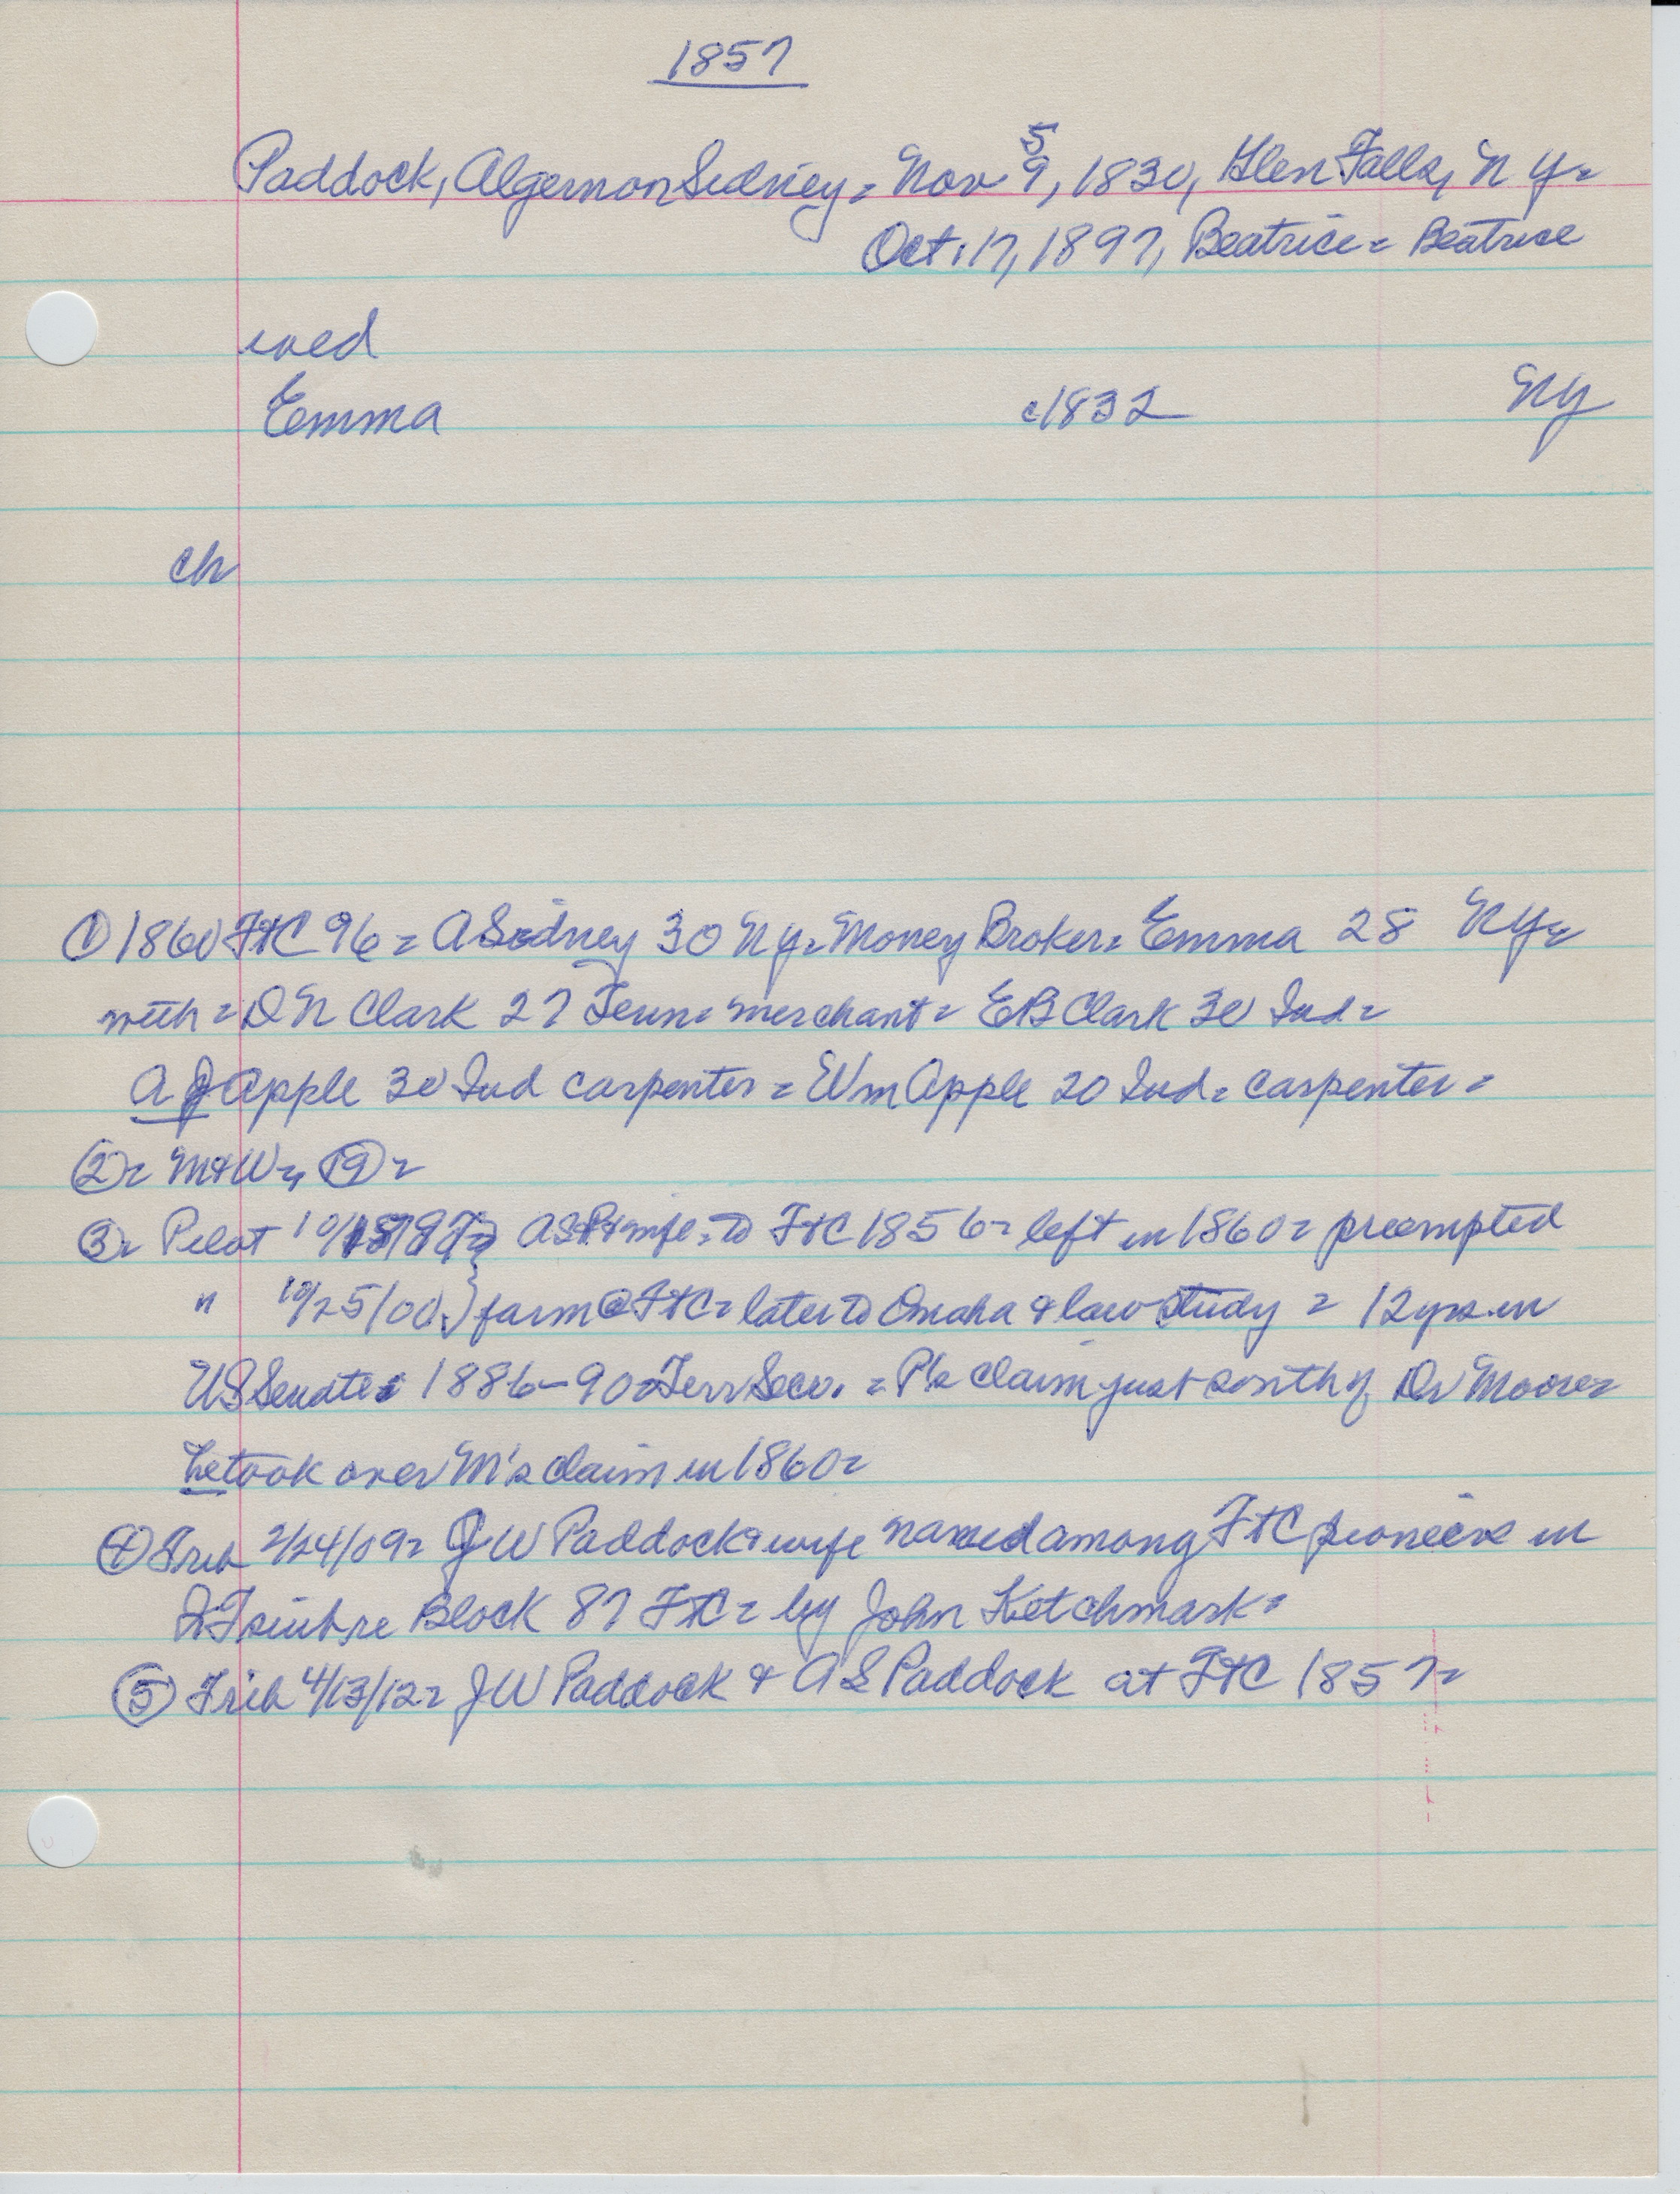 1857
Paddock, Algernon Sidney = Nov 5 9, 1830, Glen Falls, N Y =
Oct. 17, 1897, Beatrice = Beatrice
wed
Emma c1832 NY
ch
① 1860 FtC 96 = A Sidney 30 N Y = Money Broker = Emma 28 N Y =
with = D N Clark 27 Tenn = merchant = E B Clark 30 Ind =
A J Apple 30 Ind carpenter = Wm Apple 20 Ind = carpenter =
② = M+W = 19 =
③ = Pilot ASP + wife = to FtC 1856 = left in 1860 = preempted
" 10/25/00 } farm @ FtC = later to Omaha & law study = 12 yrs in
US Senate 1886-90 = Terr Secy. = P's claim just south of Dr Moore =
he took over M's claim in 1860 =
④ Trib 2/24/09 = J W Paddock & wife named among FtC pioneers in
Block 87 FtC = by John Ketchmark =
⑤ Trib 4/13/12 = J W Paddock & A S Paddock at FtC 1857 =